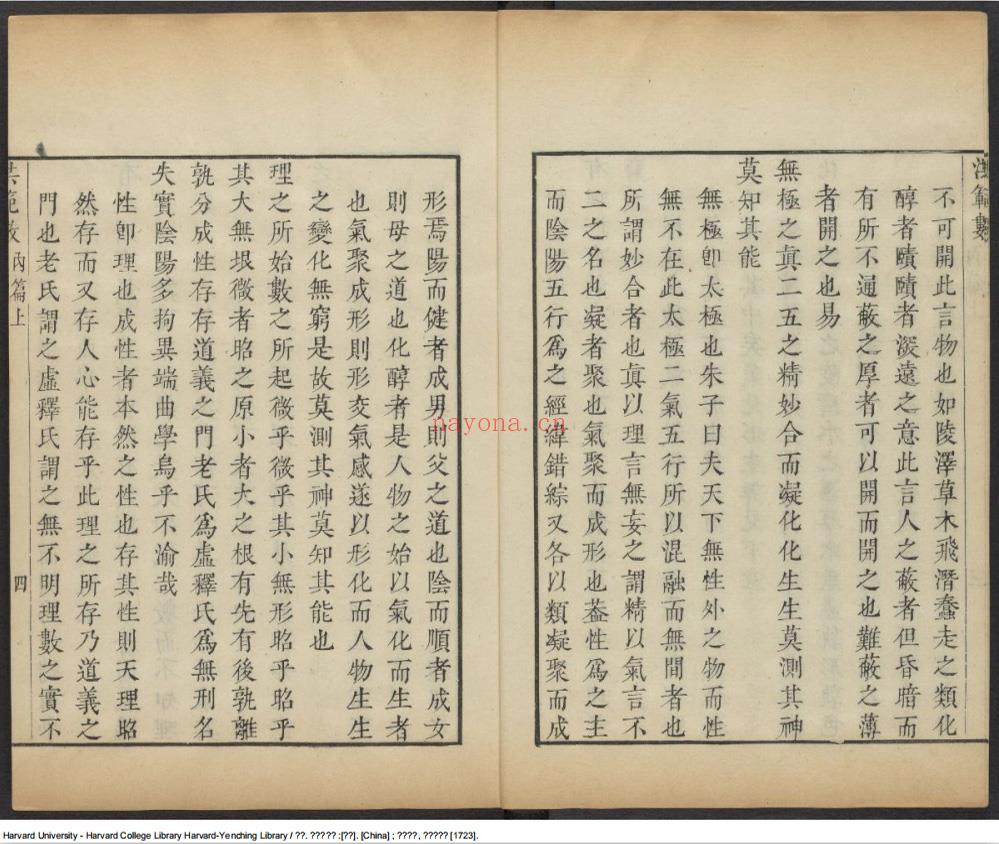 洪範數
不可開此言物也如陵澤草木飛潛蠢走之類化
醇者賾賾者深遠之意此言人之蔽者但昏暗而
有所不通蔽之厚者可以開而開之也難蔽之薄
者開之也易
無極之真二五之精妙合而凝化化生生莫測其神
莫知其能
無極卽太極也朱子曰夫天下無性外之物而性
無不在此太極二氣五行所以混融而無間者也
所謂妙合者也真以理言無妄之謂精以氣言不
二之名也凝者聚也氣聚而成形也葢性爲之主
而陰陽五行爲之經緯錯綜又各以類凝聚而成
形焉陽而健者成男則父之道也陰而順者成女
則母之道也化醇者是人物之始以氣化而生者
也氣聚成形則形交氣感遂以形化而人物生生
之變化無窮是故莫測其神莫知其能也
理之所始數之所起微乎微乎其小無形昭乎昭乎
其大無垠微者昭之原小者大之根有先有後孰離
孰分成性存存道義之門老氏爲虛釋氏爲無刑名
失實陰陽多拘異端曲學烏乎不渝哉
性卽理也成性者本然之性也存其性則天理昭
然存而又存人心能存乎此理之所存乃道義之
門也老氏謂之虛釋氏謂之無不明理數之實不
內篇上
四
nayona.cn
Harvard University - Harvard College Library Harvard-Yenching Library / ??. ????? :[??]. [China] ; ????, ????? [1723].